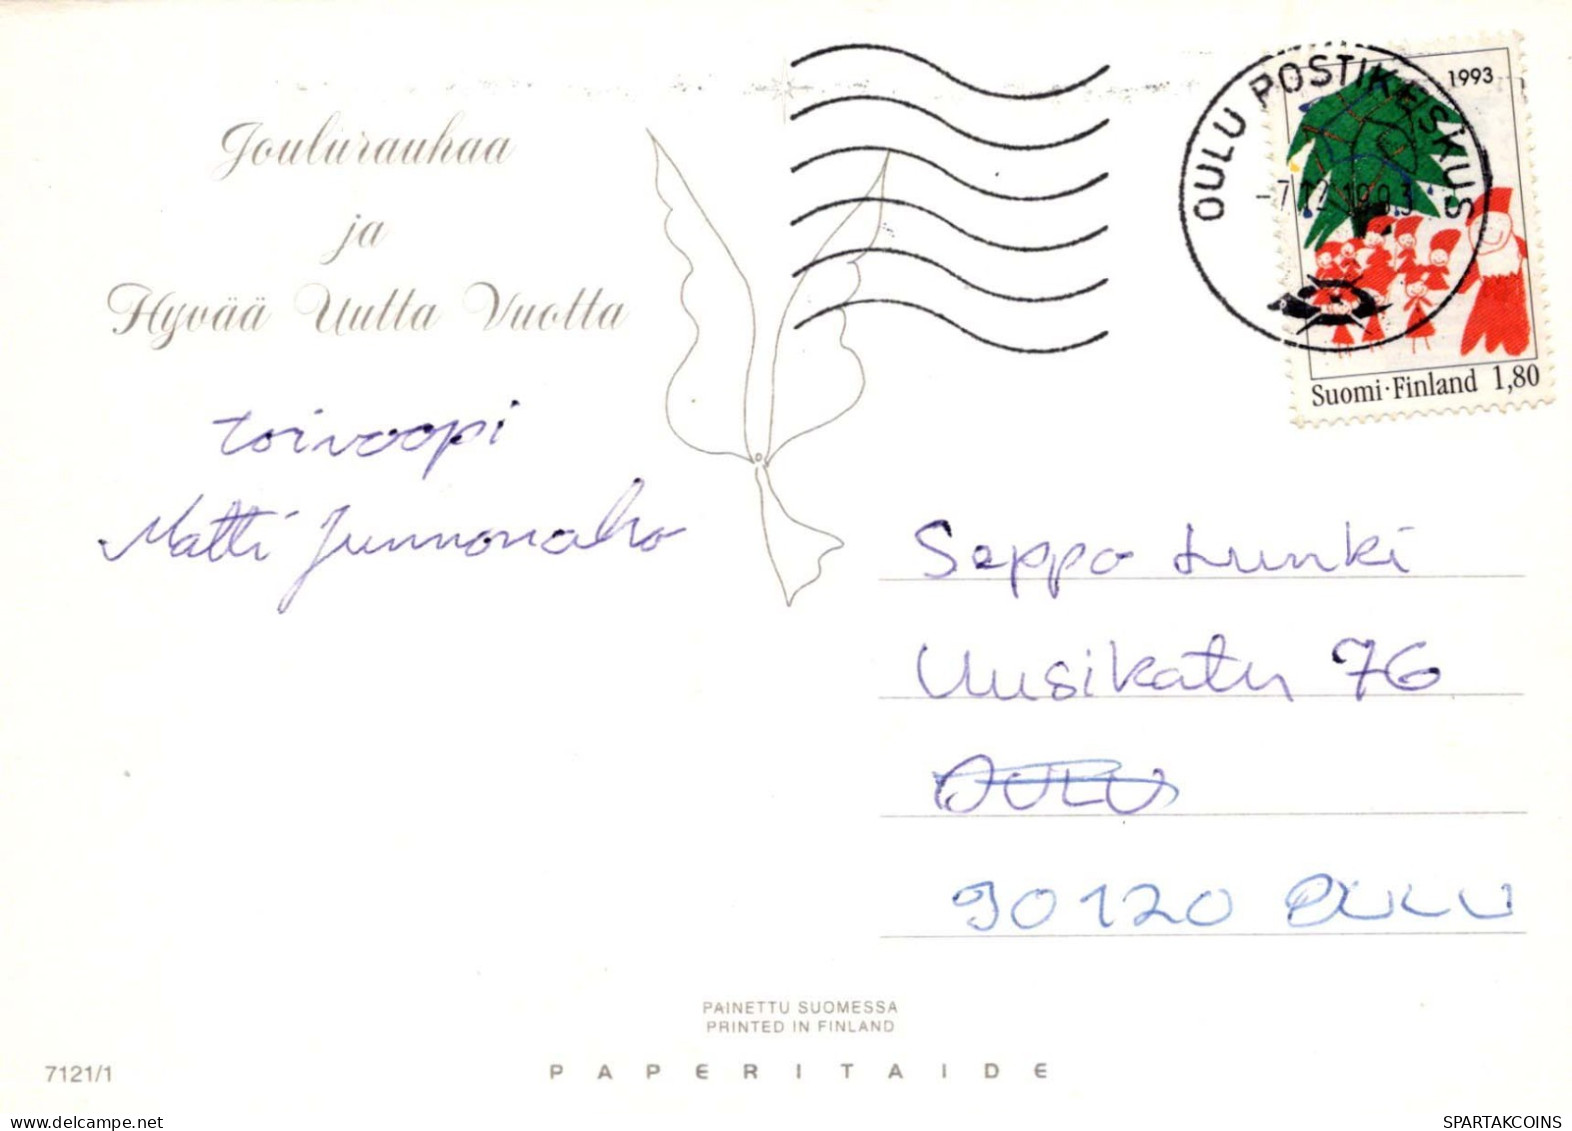 Joulurauhaa
ja
Hyvää Uutta Vuotta
toivoopi
Matti Junnonaho
OULU POSTIKESKUS
-7.12.1993
1993
Suomi·Finland 1,80
Seppo Lunki
Uusikatu 76
OULU
90120 OULU
PAINETTU SUOMESSA
PRINTED IN FINLAND
7121/1
PAPERITAIDE
delcampe.net
SPARTAKCOINS